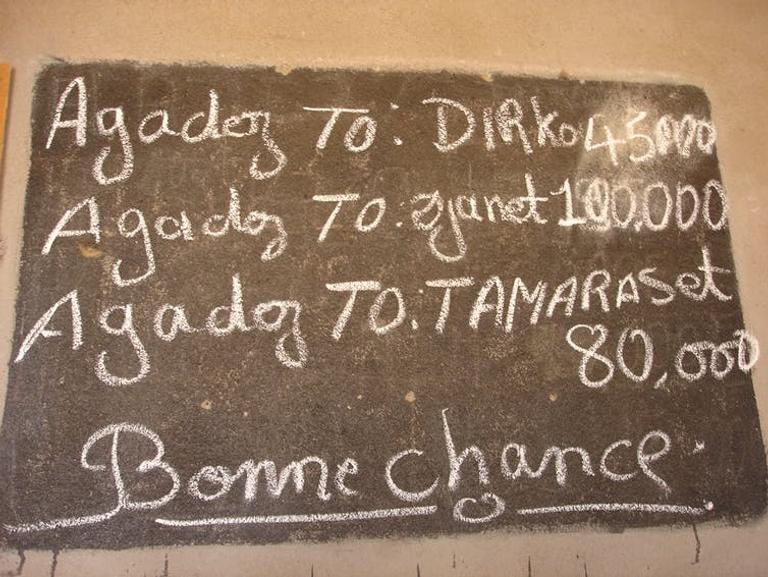 Agadez To: DIRKo 45000
Agadez To: djanet 100.000
Agadez TO. TAMARASet
80,000
Bonne chance